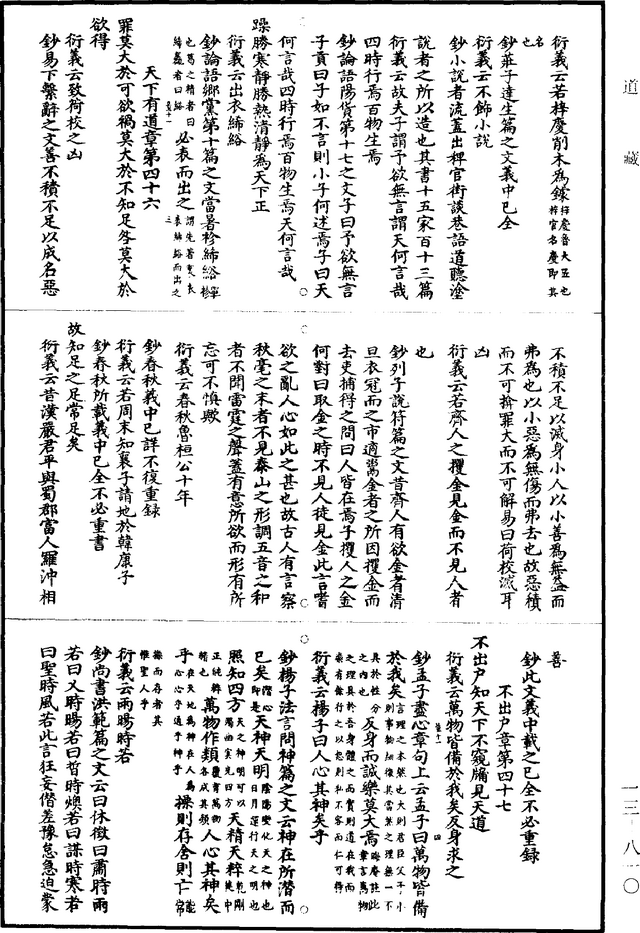 道藏
衍義云若梓慶削木為鐻梓慶魯大匠也梓官名慶即其
名也
鈔莊子達生篇之文義中已全
衍義云不飾小說
鈔小說者流蓋出稗官街談巷語道聽塗
說者之所以造也其書十五家百十三篇
衍義云故夫子謂予欲無言謂天何言哉
四時行焉百物生焉
鈔論語陽貨第十七之文子曰予欲無言
子貢曰子如不言則小子何述焉子曰天
何言哉四時行焉百物生焉天何言哉
躁勝寒靜勝熱清靜為天下正
衍義云出衣絺綌
鈔論語鄉黨第十篇之文當暑袗絺綌袗單
也葛之精者曰絺麤者曰綌必表而出之謂先著裏衣表絺綌而出之
天下有道章第四十六
罪莫大於可欲禍莫大於不知足咎莫大於
欲得
衍義云致荷校之凶
鈔易下繫辭之文善不積不足以成名惡
不積不足以滅身小人以小善為無益而
弗為也以小惡為無傷而弗去也故惡積
而不可揜罪大而不可解易曰荷校滅耳
凶
衍義云若齊人之攫金見金而不見人者
也
鈔列子說符篇之文昔齊人有欲金者清
旦衣冠而之市適鬻金者之所因攫金而
去吏捕得之問曰人皆在焉子攫人之金
何對曰取金之時不見人徒見金此言嗜
欲之亂人心如此之甚也故古人有言察
秋毫之末者不見泰山之形調五音之和
者不聞雷霆之聲蓋有意所欲而形有所
忘可不慎歟
衍義云春秋魯桓公十年
鈔春秋義中已詳不復重錄
衍義云若周末知襄子請地於韓康子
鈔春秋所載義中已全不必重書
故知足之足常足矣
衍義云昔漢嚴君平與蜀郡富人羅沖相
善
鈔此文義中載之已全不必重錄
不出戶章第四十七
不出戶知天下不窺牖見天道
衍義云萬物皆備於我矣反身求之
鈔孟子盡心章句上云孟子曰萬物皆備
於我矣言理之本然也大則君臣父子小則事物細微其當然之理無一不具於性分之內也反身而誠樂莫大焉
衍義云楊子曰人心其神矣乎
鈔楊子法言問神篇之文云神在所潛而
已矣潛心即是天神天明陰陽變化天之神也日月運行天之明也
照知四方天之神明可以燭幽察實四方天精天粹
萬物作類人心其神矣
乎操則存舍則亡能常
操而存者其惟聖人乎
衍義云雨暘時若
鈔尚書洪範篇之文云曰休徵曰肅時雨
若曰乂時暘若曰晢時燠若曰謀時寒若
曰聖時風若此言狂妄僭差豫怠急迫蒙
一三-八一〇